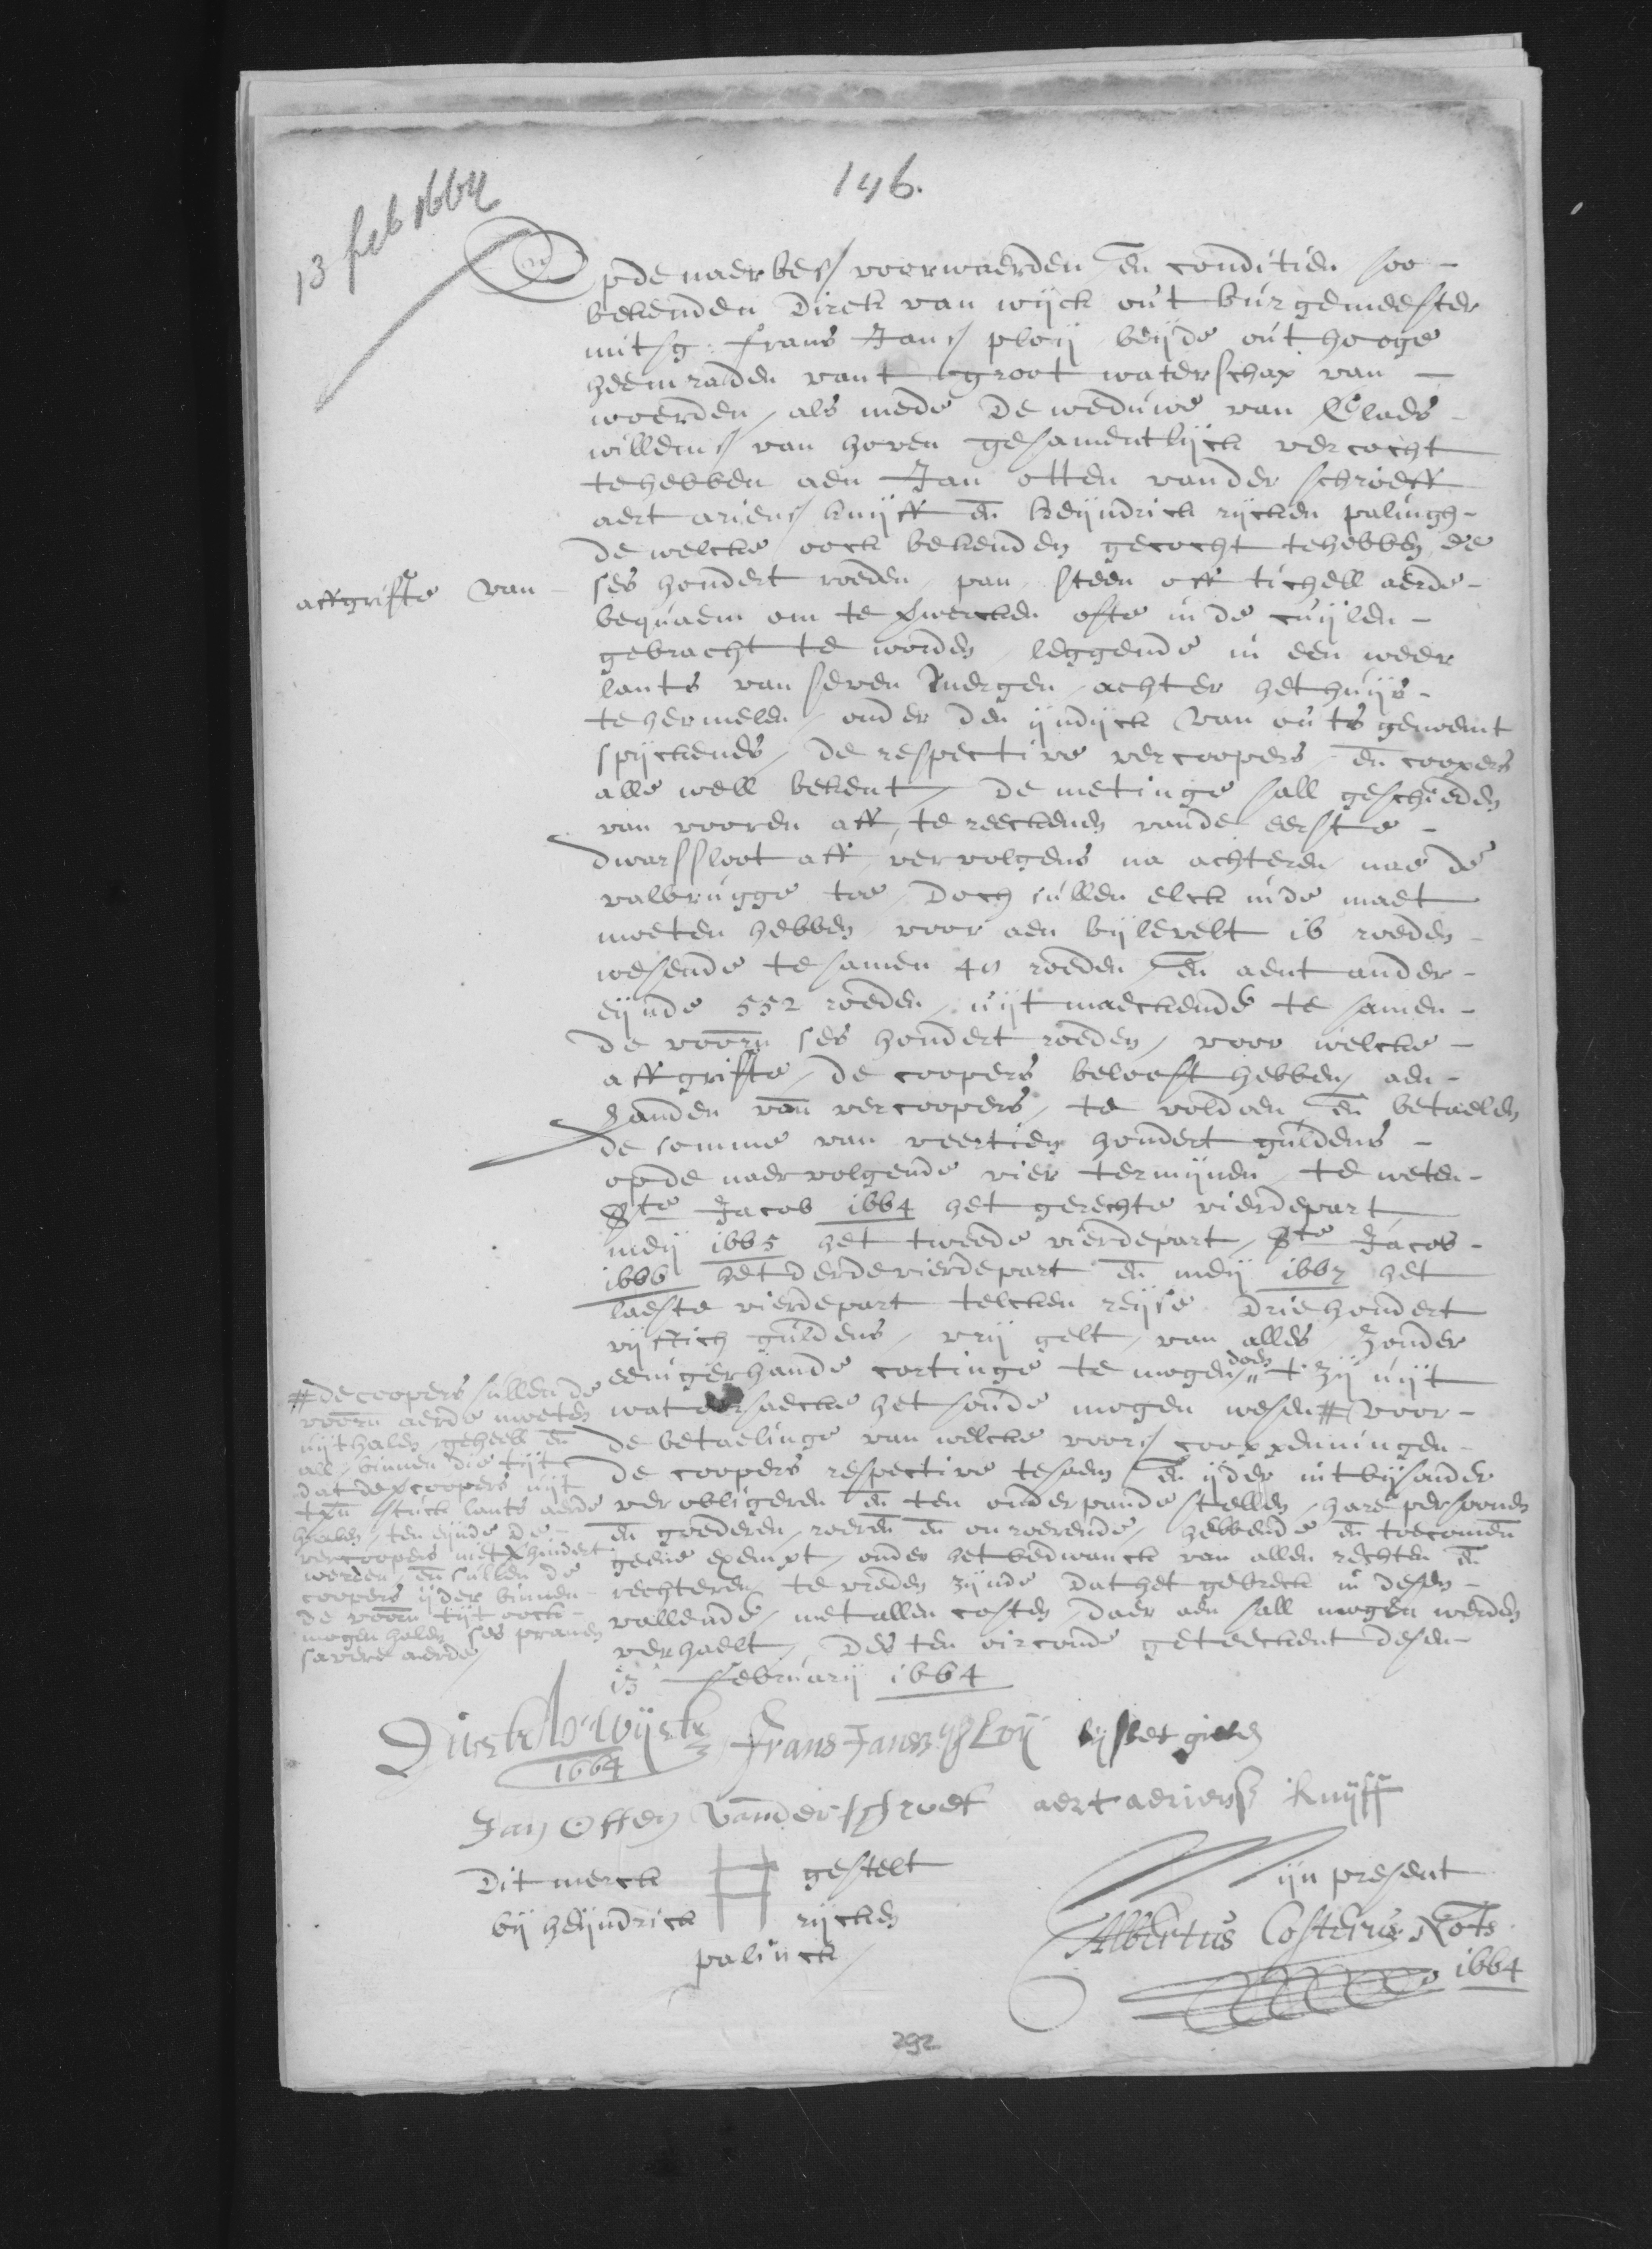 146.
13 feb 1664
Opde naerbes/ voorwaerden en conditien soo-
bekenden Dirck van wijck out burgemeester
mitsg: frans Jans/ ploij beijde out hooge
heemraden vant groot waterschap van -
woerden, als mede de weduwe van Claes -
willems/ van hoven gesamentlijck vercocht
te hebben aen Jan otten vander schroeff
aert ariens/ knijff en heijndrick rijcken palingh -
de welcke oock bekenden gecocht te hebben de
affgrifte van -
ses hondert roeden, pan, steen off tichell aerde -
bequaem om te verwercken ofte inde cuijlen -
gebracht te worden, leggende in een weer
lants van seven mergen, achter het huijs -
te hermelen, onder den ijndijck van outs genoemt
spijckenes, de respective vercoopers, en coopers
alle well bekent, De metinge sall geschieden
van vooren aff, te reeckenen vande eerste -
dwarssloot aff, vervolgens na achteren, nae de
valbrugge toe, Doch sullen elck inde maet
moeten hebben, voor aen bijlevelt 16 roeden -
wesende te samen 48 roeden, en aent ander -
eijnde 552 roeden, uijtmaeckende te samen -
de voorn ses hondert roeden, voor welcke -
affgrifte, de coopers belooft hebben, aen -
handen van vercoopers, te voldoen en betaelen
de somme van veertien hondert guldens -
opde naervolgende vier termijnen, te weten -
Ste Jacob 1664 het gerechte vierdepart
meij 1665 het tweede vierdepart, Ste Jacob -
1666 het derde vierdepart en meij 1667 het
laeste vierdepart telcken reijse driehondert
vijftich guldens, vrij gelt, van alles, zonder
eenigerhande cortinge te mogen doen, t zij uijt
wat oorsaecke het soude mogen wesen # voor -
de betaelinge van welcke voors/ cooppenningen -
de coopers respective tesaem en ijder int bijsonder
verobligeren en ten onderpande stellen, hare persoonen
en goederen, roeren en onroerende, hebbende en toecomen
geene exempt, onder het bedwanck van allen rechten en
rechteren, te vreden zijnde dat het gebreck in desen -
vallende, met allen costen, daer aen sall mogen werden
verhaelt, Des ten oirconde geteeckent desen -
13 februarij 1664
# de coopers sullen de
voorn aerde moeten
uijthalen, geheel en
all, binnen die tijt
dat de vercoopers uijt
stuck lants aerde
haelen, ten eijnde de -
vercoopers niet verhindert
werden, en sullen de
coopers ijder binnen -
de voorn tijt oock -
mogen halen ses pramen
savel aerde,
Dirck v. Wijck
1664
Frans Jansz ploij
lijsbet gielen
Jan Otten vander schroef
aert aeriensz knijff
Dit merck H gestelt
bij heijndrick rijcken
palinck,
Mijn present
Albertus Costerus Nots
1664
292